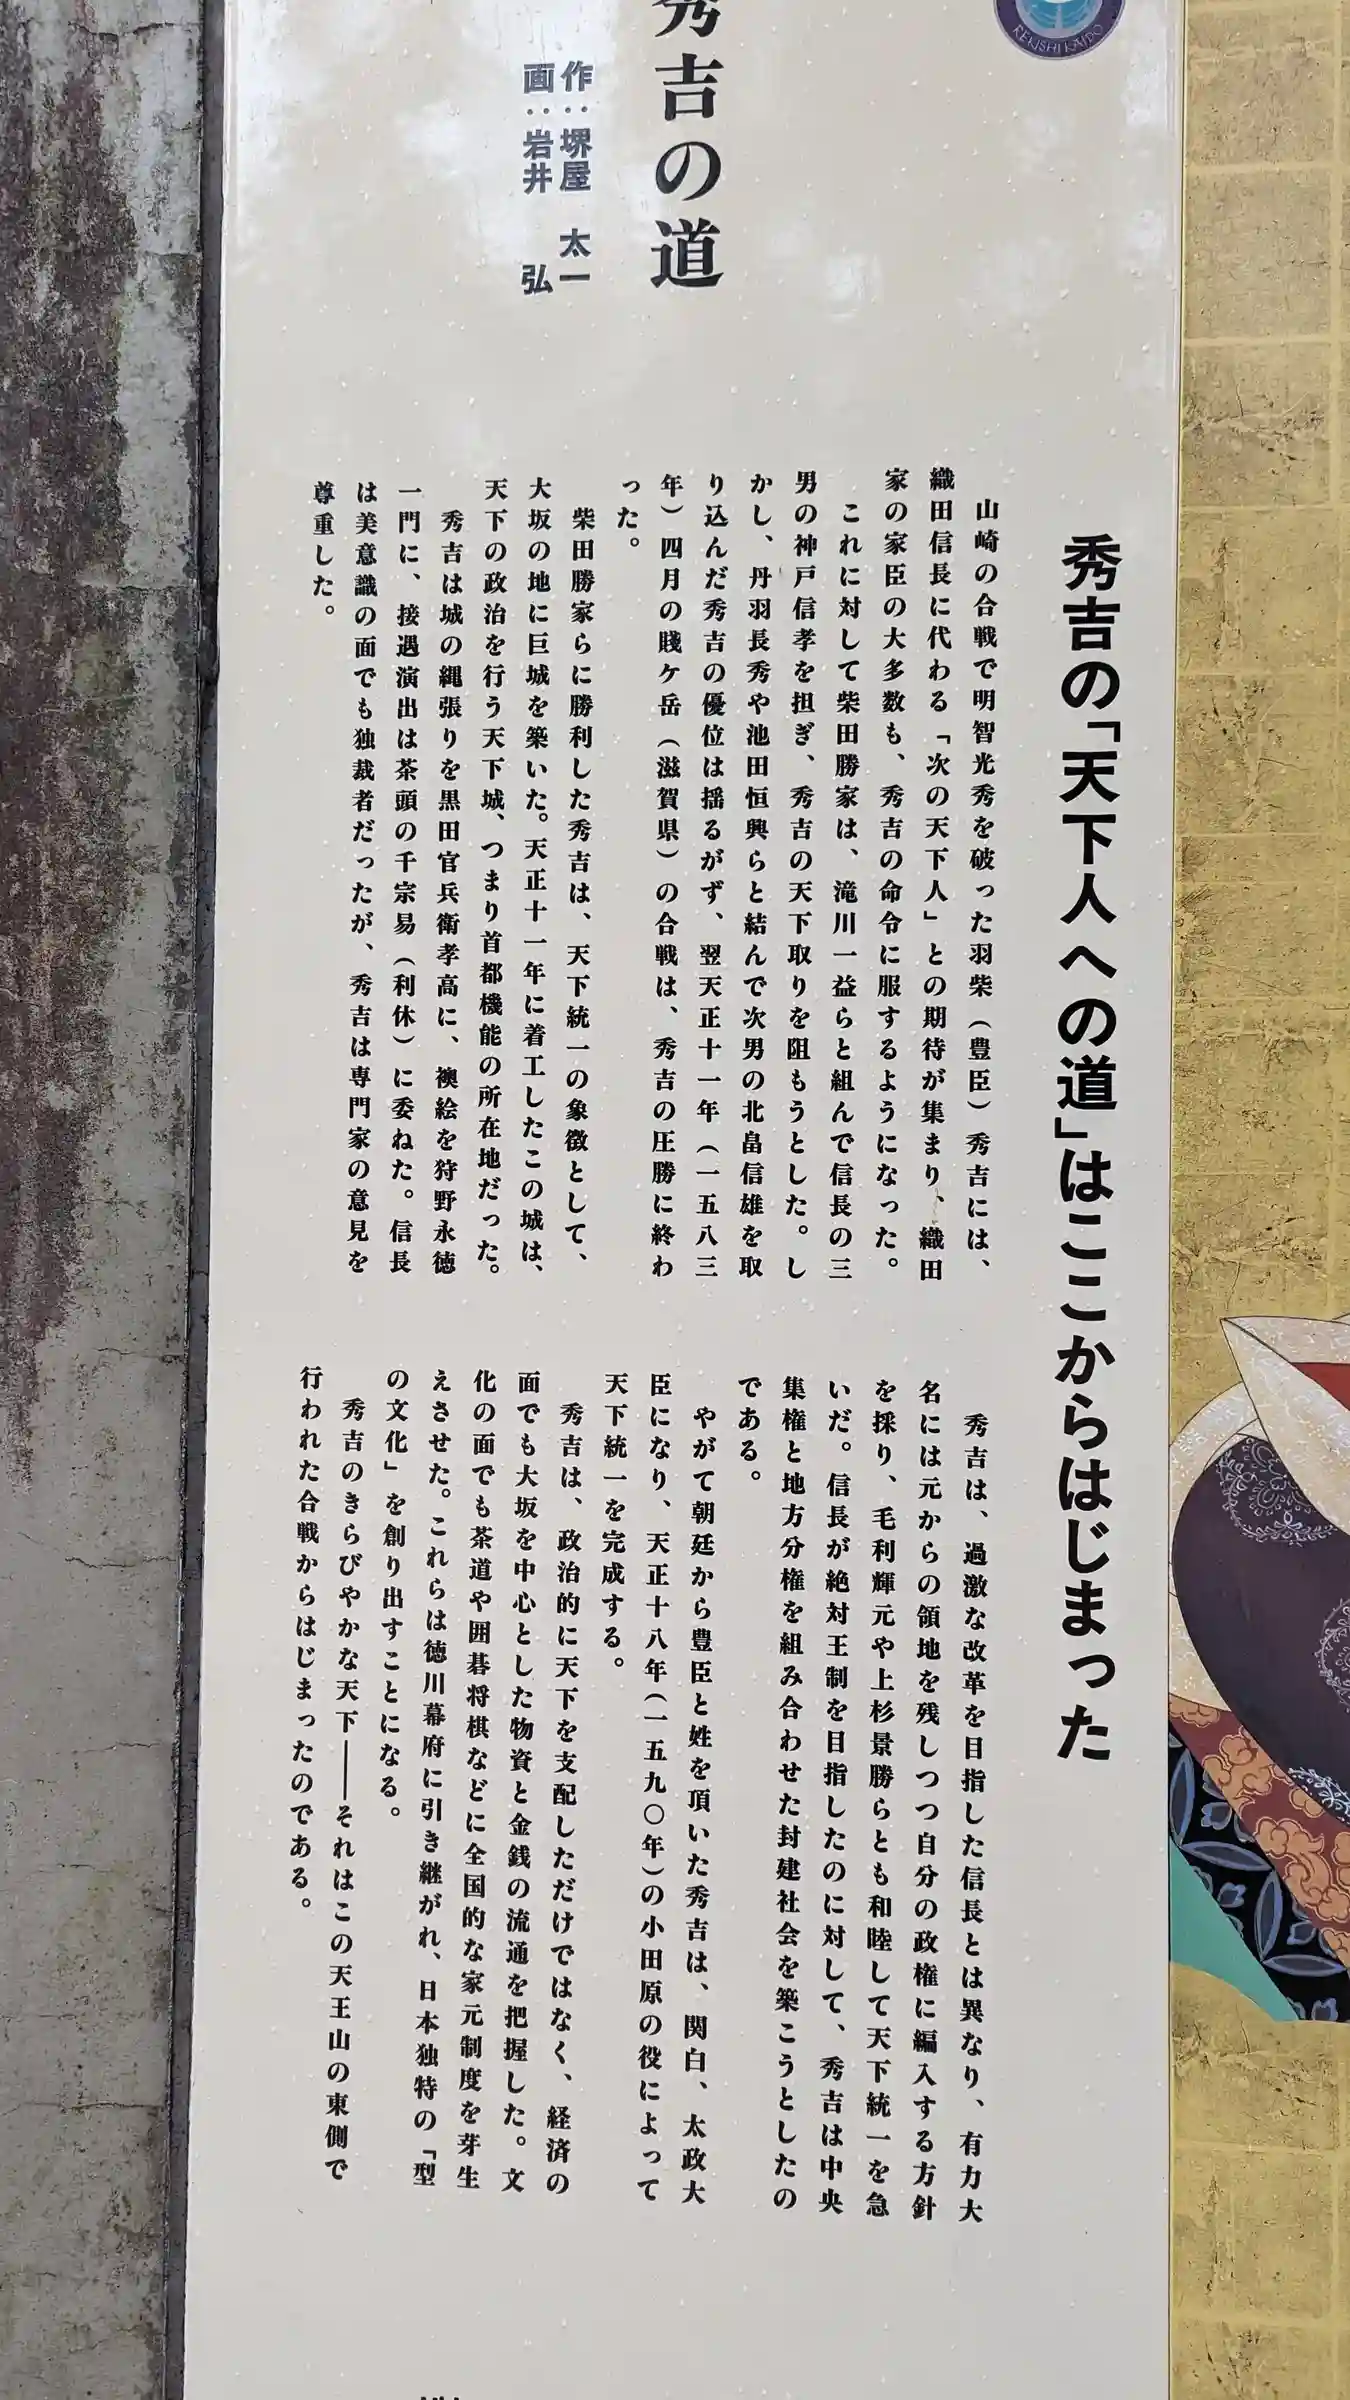 REKISHI KAIDO
秀吉の「天下人への道」はここからはじまった
秀吉の道
作：堺屋 太一
画：岩井 弘
山崎の合戦で明智光秀を破った羽柴（豊臣）秀吉には、
織田信長に代わる「次の天下人」との期待が集まり、織田
家の家臣の大多数も、秀吉の命令に服するようになった。
これに対して柴田勝家は、滝川一益らと組んで信長の三
男の神戸信孝を担ぎ、秀吉の天下取りを阻もうとした。し
かし、丹羽長秀や池田恒興らと結んで次男の北畠信雄を取
り込んだ秀吉の優位は揺るがず、翌天正十一年（一五八三
年）四月の賤ケ岳（滋賀県）の合戦は、秀吉の圧勝に終わ
った。
柴田勝家らに勝利した秀吉は、天下統一の象徴として、
大坂の地に巨城を築いた。天正十一年に着工したこの城は、
天下の政治を行う天下城、つまり首都機能の所在地だった。
秀吉は城の縄張りを黒田官兵衛孝高に、襖絵を狩野永徳
一門に、接遇演出は茶頭の千宗易（利休）に委ねた。信長
は美意識の面でも独裁者だったが、秀吉は専門家の意見を
尊重した。
秀吉は、過激な改革を目指した信長とは異なり、有力大
名には元からの領地を残しつつ自分の政権に編入する方針
を採り、毛利輝元や上杉景勝らとも和睦して天下統一を急
いだ。信長が絶対王制を目指したのに対して、秀吉は中央
集権と地方分権を組み合わせた封建社会を築こうとしたの
である。
やがて朝廷から豊臣と姓を頂いた秀吉は、関白、太政大
臣になり、天正十八年（一五九〇年）の小田原の役によって
天下統一を完成する。
秀吉は、政治的に天下を支配しただけではなく、経済の
面でも大坂を中心とした物資と金銭の流通を把握した。文
化の面でも茶道や囲碁将棋などに全国的な家元制度を芽生
えさせた。これらは徳川幕府に引き継がれ、日本独特の「型
の文化」を創り出すことになる。
秀吉のきらびやかな天下――それはこの天王山の東側で
行われた合戦からはじまったのである。